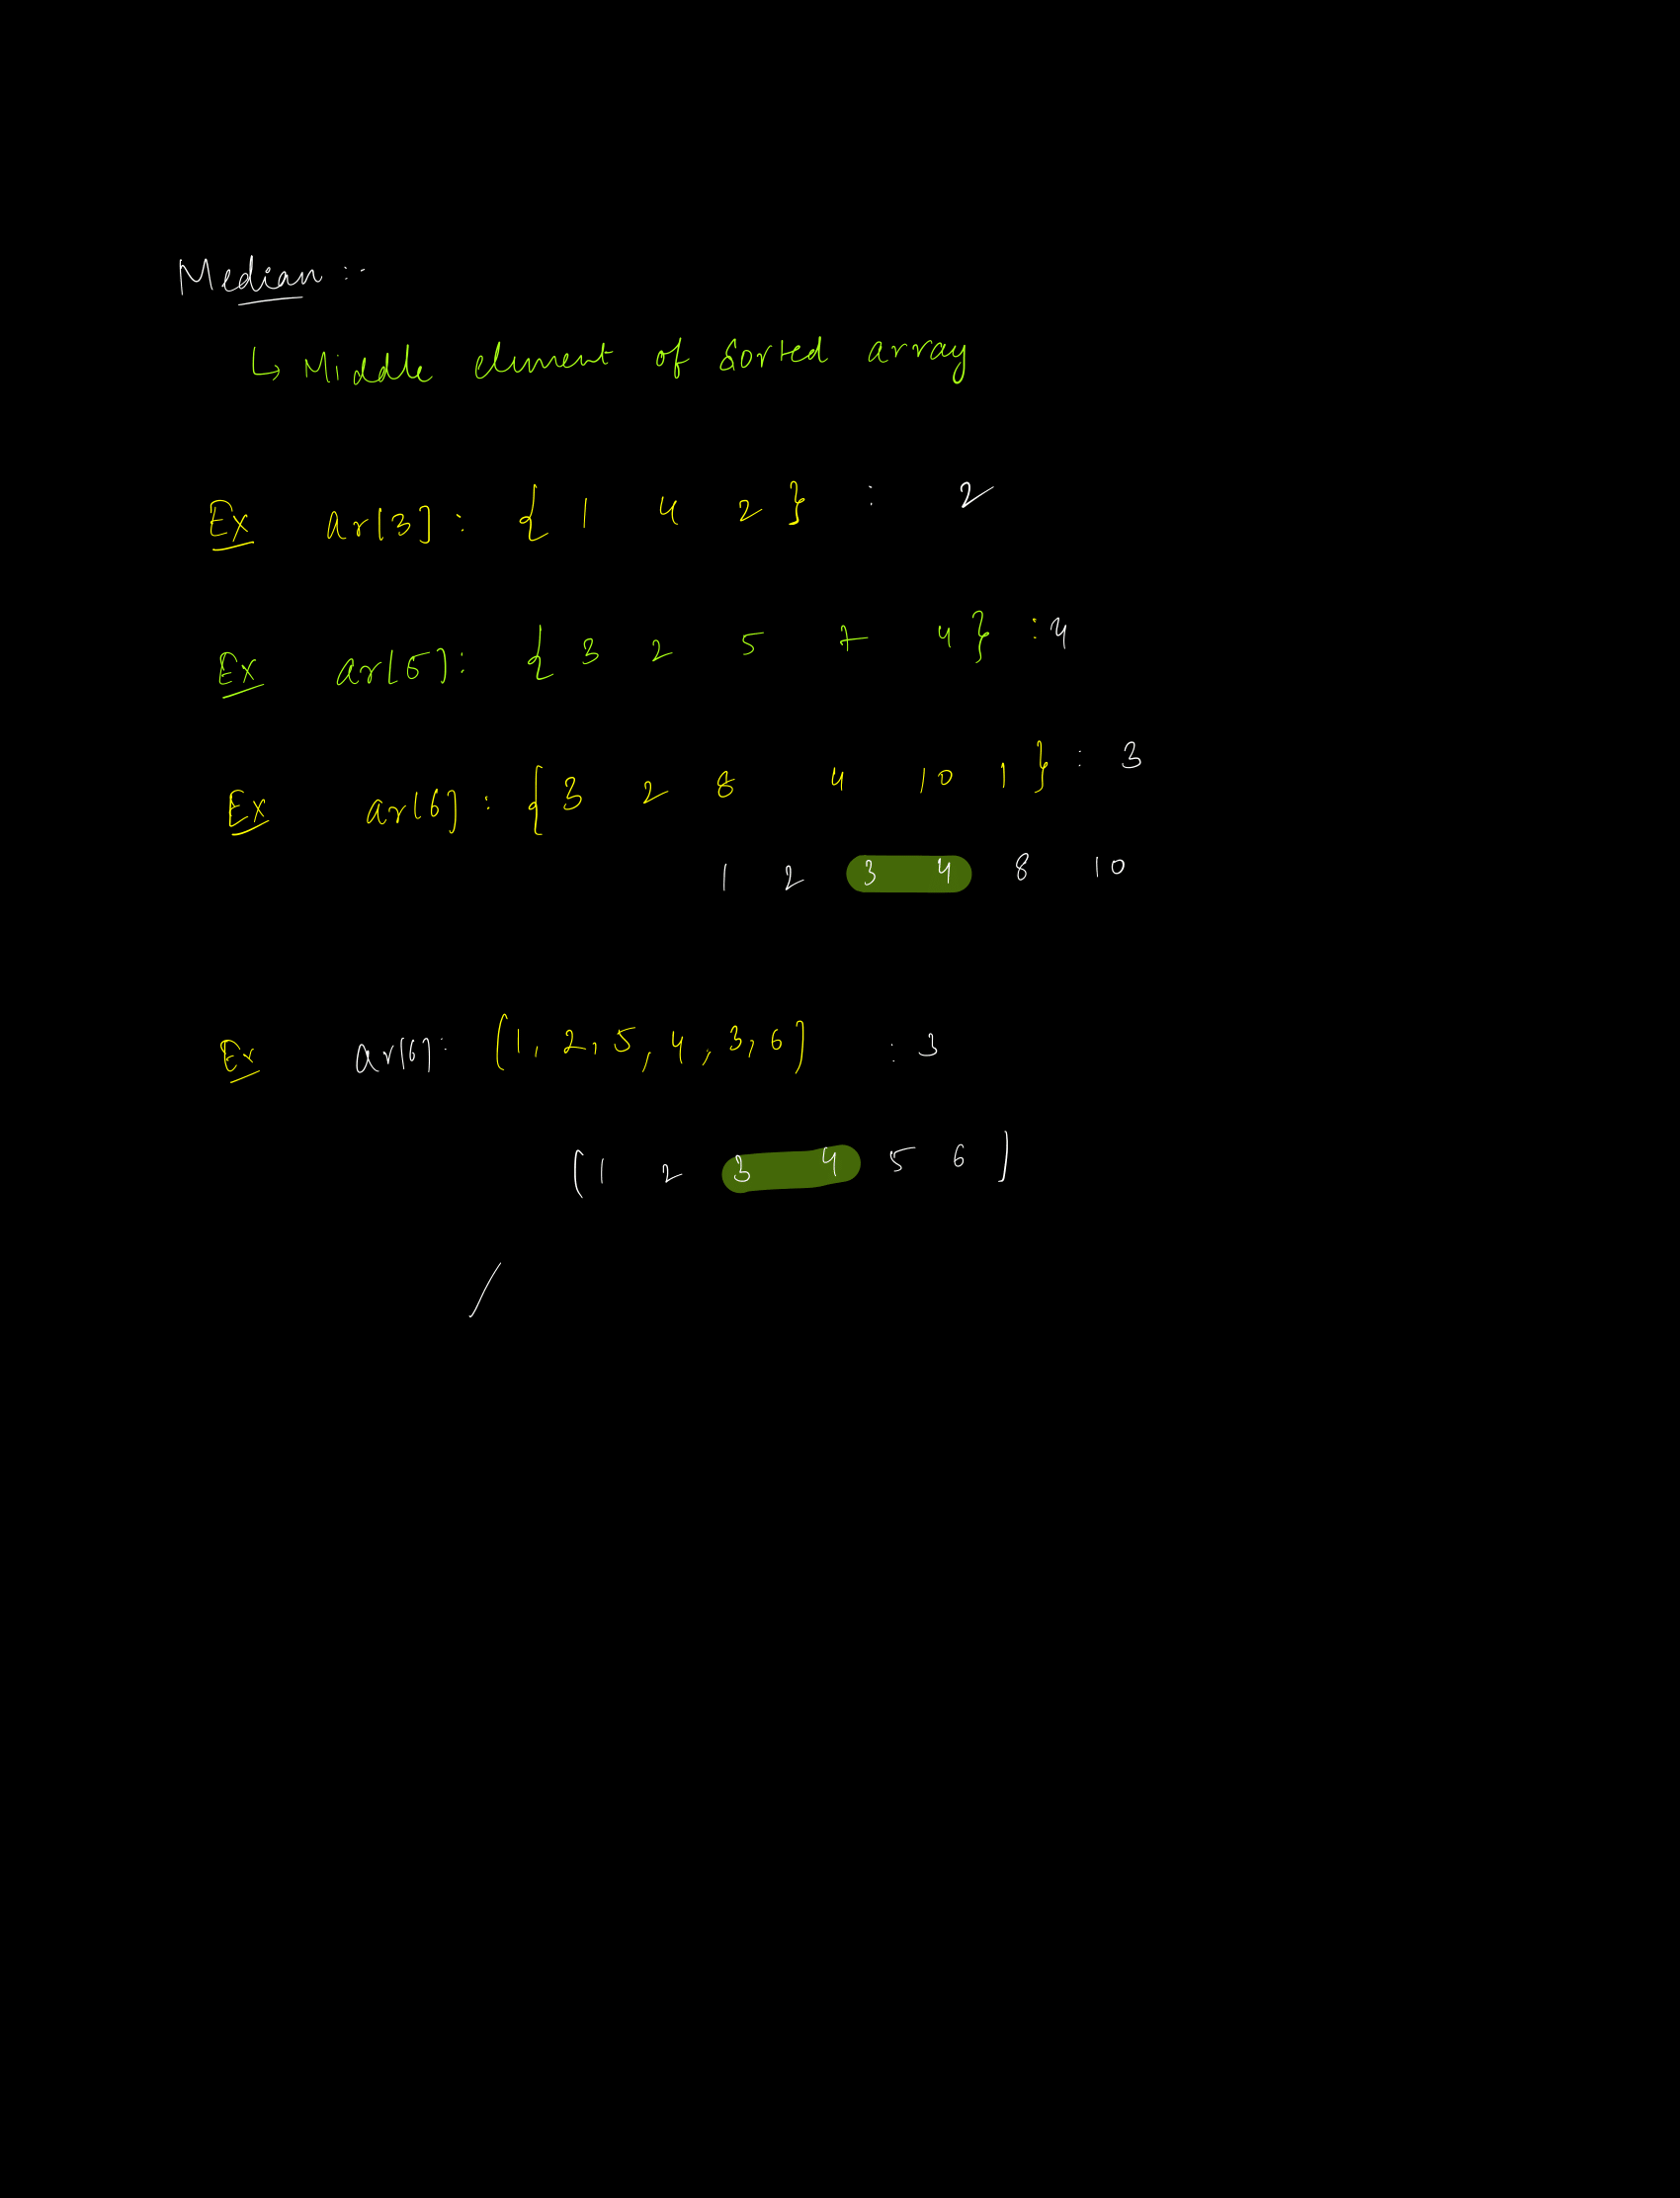 Median :-
↳ Middle element of Sorted array
Ex ar[3] : { 1 4 2 } : 2
Ex ar[5] : { 3 2 5 7 4 } : 4
Ex ar[6] : { 3 2 8 4 10 1 } : 3
1 2 3 4 8 10
Ex ar[6] : [1, 2, 5, 4, 3, 6] : 3
[1 2 3 4 5 6]